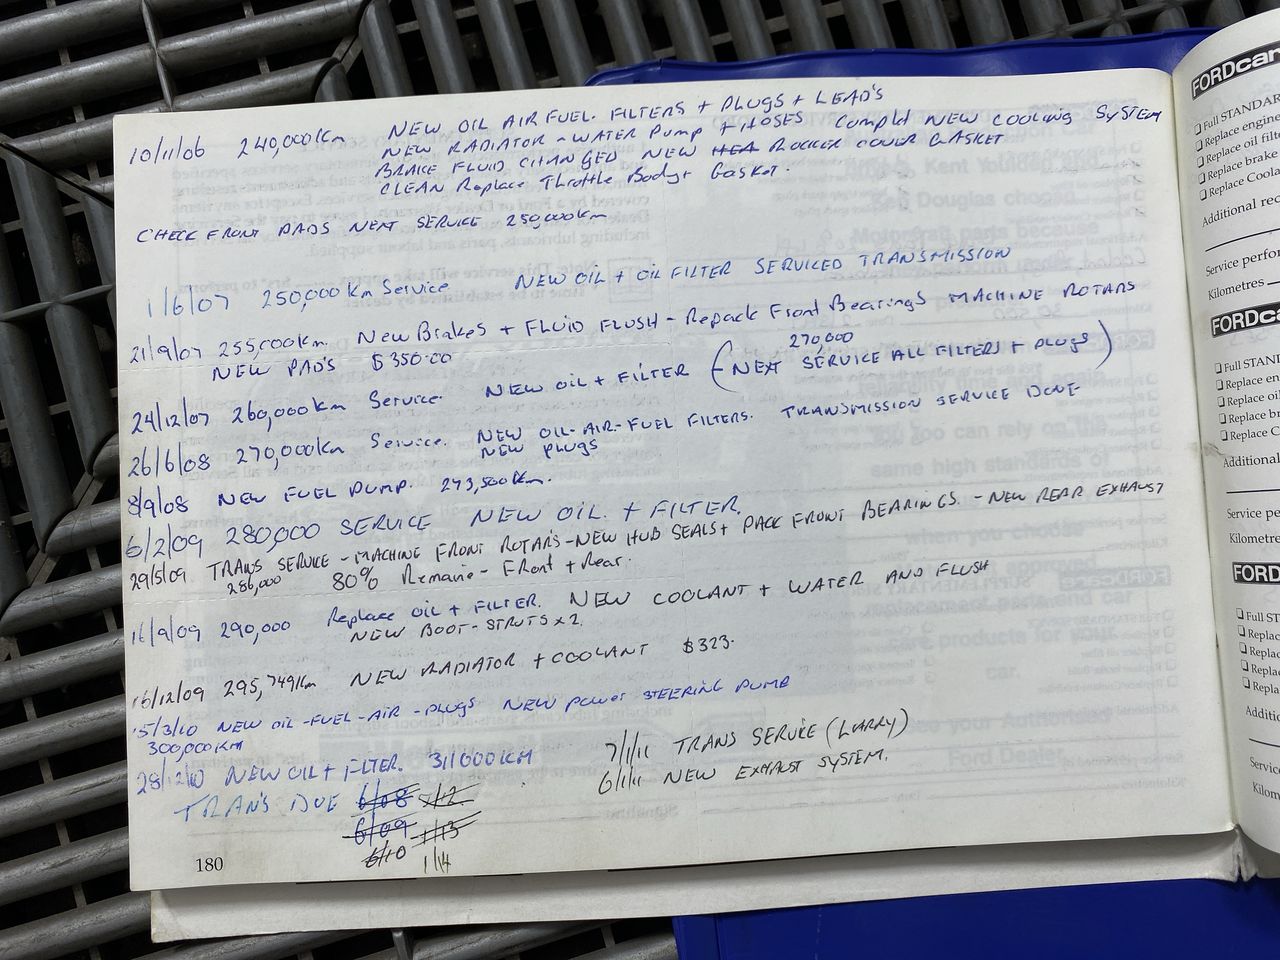 10/11/06 240,000Km NEW OIL AIR FUEL. FILTERS + PLUGS + LEAD'S
NEW RADIATOR - WATER PUMP + HOSES Complet NEW COOLING SYSTEM
BRAKE FLUID CHANGED NEW HEA ROCKER COVER GASKET
CLEAN Replace Throttle Body + Gasket.
CHECK FRONT PADS NEXT SERVICE 250,000Km
1/6/07 250,000Km Service NEW OIL + OIL FILTER SERVICED TRANSMISSION
21/9/07 255,000Km. New Brakes + FLUID FLUSH - Repack Front Bearings MACHINE ROTARS
NEW PAD'S $350.00
24/12/07 260,000Km Service. NEW OIL + FILTER (NEXT SERVICE ALL FILTERS + PLUGS)
270,000
26/6/08 270,000Km Service. NEW OIL-AIR-FUEL FILTERS. TRANSMISSION SERVICE DONE
NEW PLUGS
8/9/08 NEW FUEL PUMP. 273,500Km.
6/2/09 280,000 SERVICE NEW OIL. + FILTER.
29/5/09 TRANS SERVICE - MACHINE FRONT ROTAR'S - NEW HUB SEALS + PACK FRONT BEARINGS. - NEW REAR EXHAUST
286,000 80% Remane - Front + Rear.
16/9/09 290,000 Replace OIL + FILTER. NEW COOLANT + WATER AND FLUSH
NEW BOOT - STRUTS x 2.
16/12/09 295,749Km NEW RADIATOR + COOLANT $323.
15/3/10 NEW OIL-FUEL-AIR-PLUGS NEW POWER STEERING PUMP
300,000KM
28/12/10 NEW OIL + FILTER. 311000KM
7/1/11 TRANS SERVICE (LARRY)
6/1/11 NEW EXHAUST SYSTEM.
TRAN'S DUE 6/08 1/12
6/09 1/13
6/10 1/14
180
FORDcar
Full STANDAR
Replace engine
Replace oil filt
Replace brake
Replace Coola
Additional rec
Service perfor
Kilometres
FORDcar
Full STAND
Replace en
Replace oil
Replace br
Replace C
Additional
Service pe
Kilometre
FORD
Full ST
Replac
Replac
Replac
Repla
Additi
Servic
Kilom